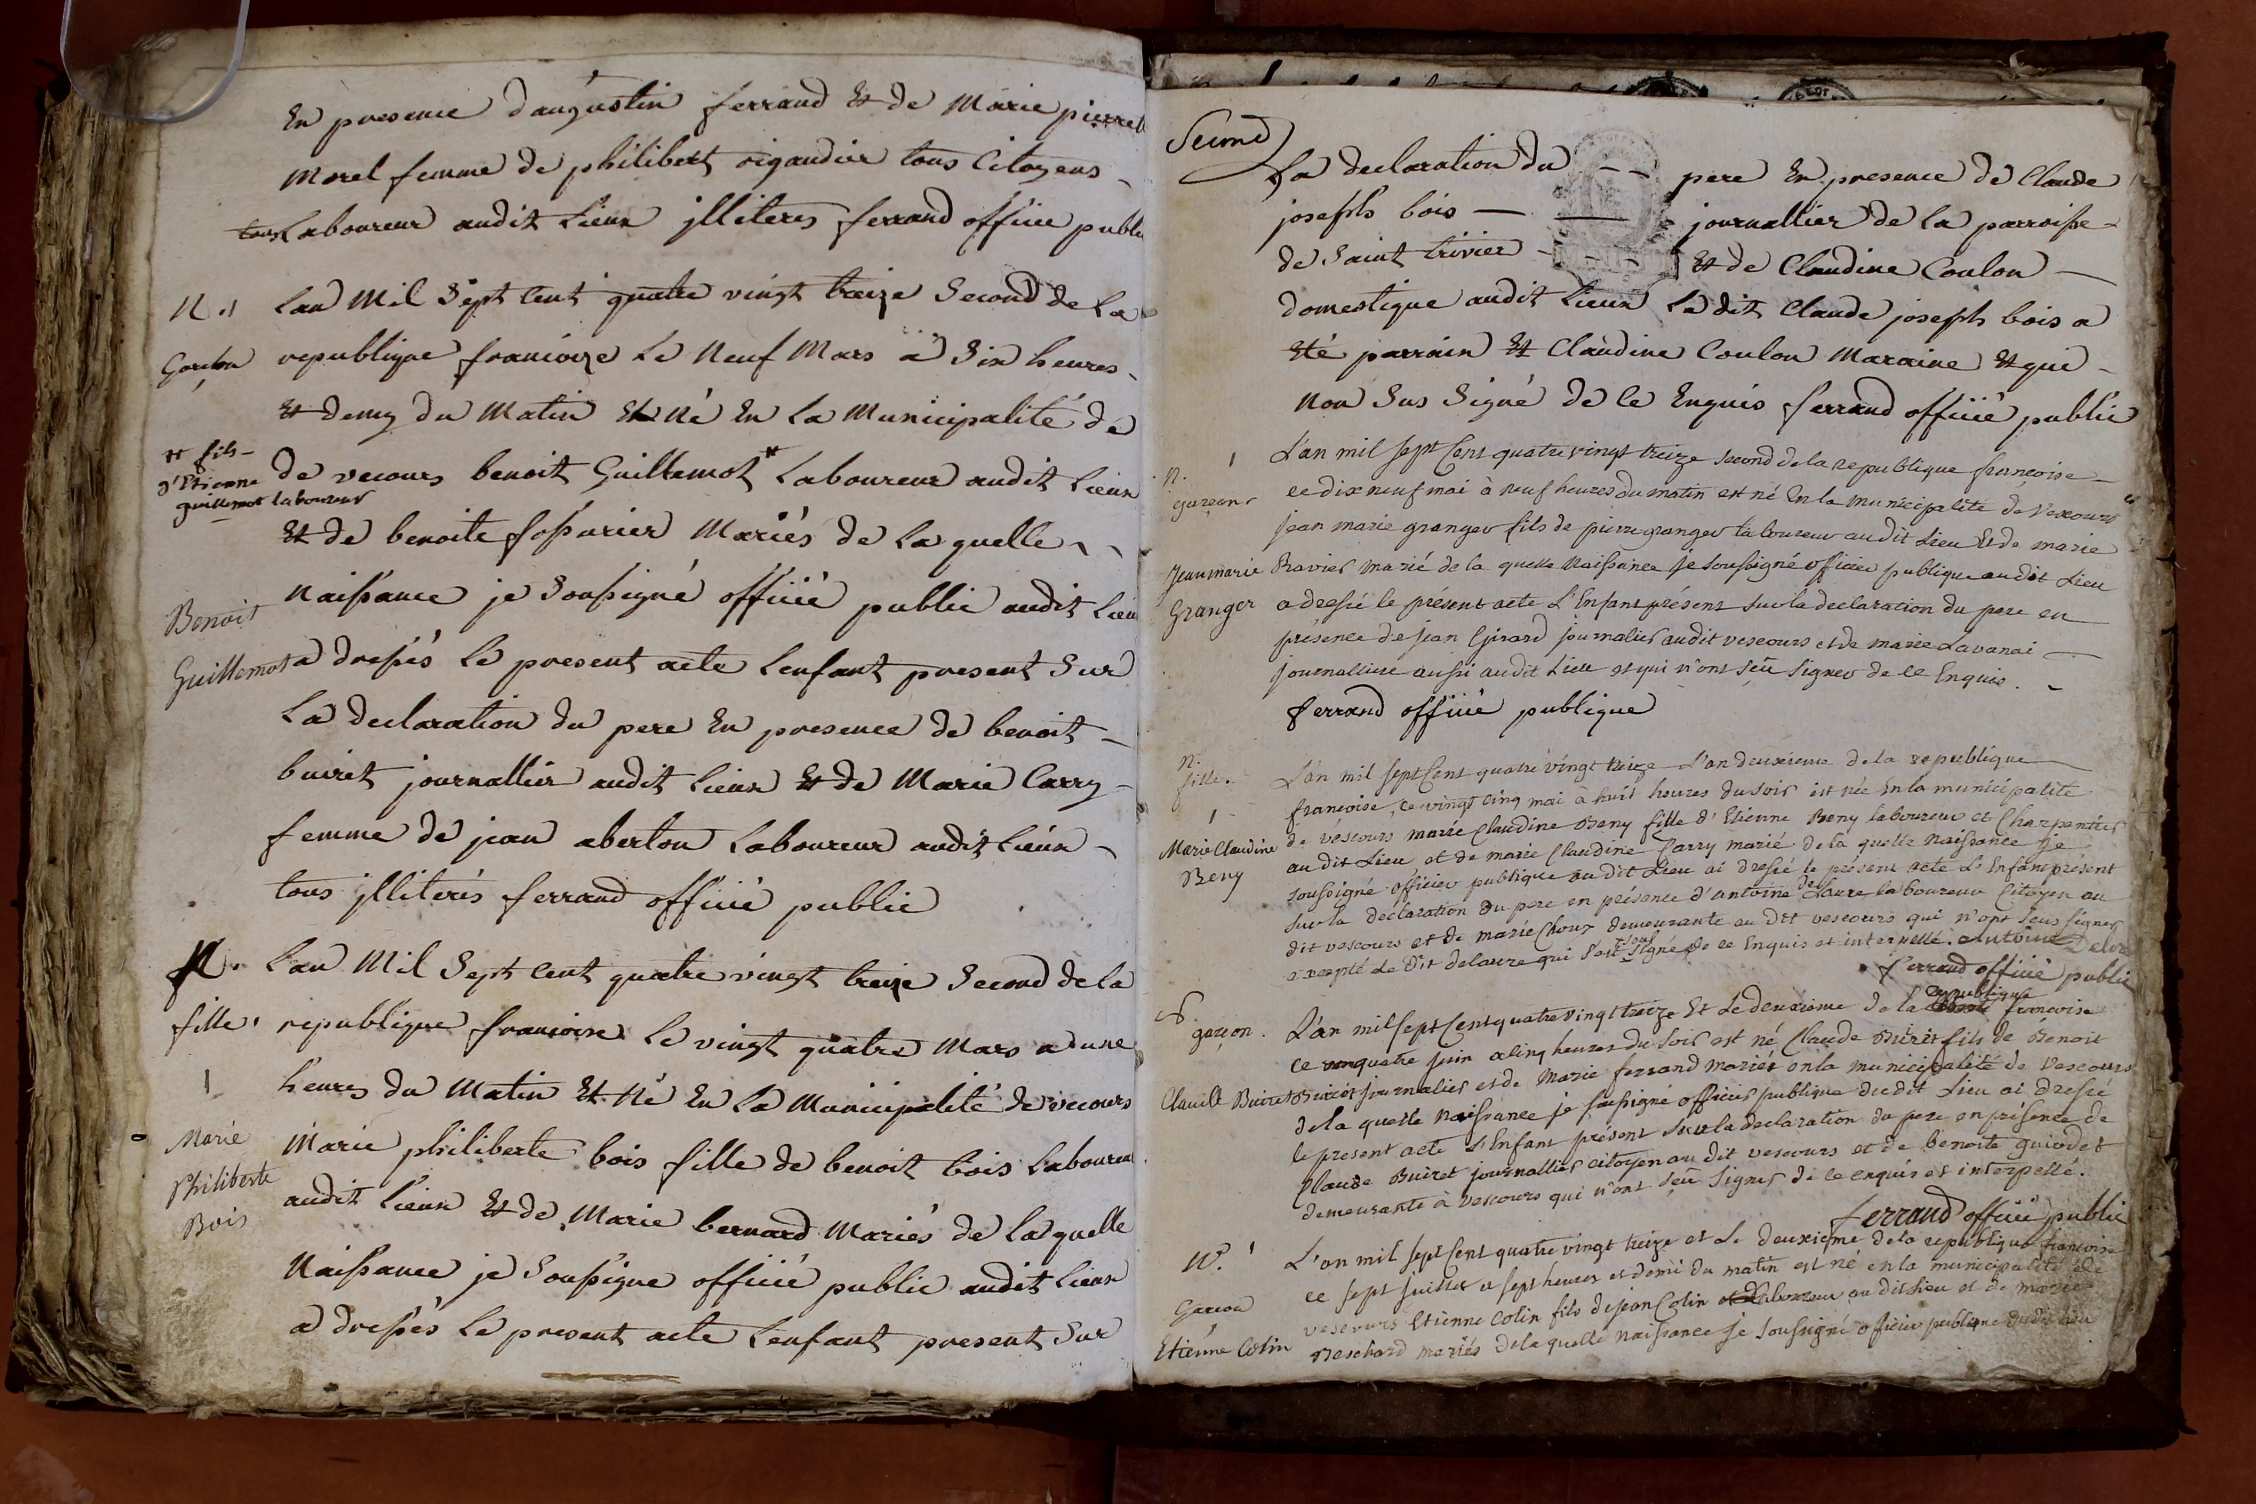 En presence d'augustin ferrand Et de Marie pierrett
Morel femme de philibert rigaudier tous Citoyens
Laboureur audit Lieux jlliteres ferrand officié public
N. 1
Garçon
Lan Mil Sept Cent quatre vingt treize Second de La
republique francoize Le Neuf Mars a Six heures
Et demy du Matin Et Né En La Municipalité de
* fils
d'Etienne
guillemot laboureur
de vecours benoit Guillemot * Laboureur audit Lieux
Et de benoite fossurier Mariés de La quelle
Benoit
Guillemot
Naissance je Soussigné officié public audit Lieux
a dressés Le present acte Lenfant present Sur
La declaration du pere En presence de benoit
buiret journallier audit Lieux Et de Marie Carry
femme de jean aberlon Laboureur audit Lieux
tous jlliterés ferrand officié public
N.
fille
1
Marie
Philiberte
Bois
Lan Mil Sept Cent quatre vingt treize Second de La
republique francoise Le vingt quatre Mars a une
heures du Matin Et Né En La Municipalité de vecours
Marie philiberte bois fille de benoit bois Laboureur
audit Lieux Et de Marie bernard Mariés de La quelle
Naissance je Soussigne officié public audit Lieux
a dressés Le present acte Lenfant present Sur
Second
La declaration du pere En presence de Claude
josephs bois journallier de La parroisse
de Saint trivier Et de Claudine Coulon
domestique audit Lieux La dit Claude joseph bois a
Eté parrain Et Claudine Coulon Maraine Et qui
Non Sus Signé de Ce Enquis ferrand officié public
n. 1
garçon
Jean marie
Granger
L'an mil sept Cent quatre vingt treize second de la republique francoise
ce dix neuf mai à neuf heures du matin est né En la municipalité de Vescours
jean marie granger fils de pierre granger laboureur au dit Lieu Et de marie
Ravier marié de la quelle Naissance je soussigné officier publique au dit Lieu
a dressé le présent acte L'Enfant présent sur la declaration du pere en
présence de jean Girard journalier audit vescours et de marie Lavanai
journalliere aussi au dit Lieu et qui n'ont sçeu signer de ce Enquis.
ferrand officié publique
n.
fille.
1
Marie Claudine
Beny
L'an mil sept Cent quatre vingt treize L'an deuxieme de la republique
francoise, ce vingt cinq mai à huit heures du soir est née En la municipalité
de vescours marie Claudine Beny fille d'Etienne Beny laboureur et Charpentier
au dit Lieu et de marie Claudine Carry marié de la quelle Naissance je
soussigné officier publique au dit Lieu ai dressé le présent acte L'Enfant présent
sur la déclaration du pere en présence d'antoine delaure laboureur Citoyen au
dit vescours et de marie Choux demeurante au dit vescours qui n'ont seus signer
excepté Le dit delaure qui s'est sousigné de ce Enquis et interpellé. antoine
ferrand officié public
N.
garçon.
Claude Buiret
L'an mil sept Cent quatre vingt treize Et Le deuxieme de la republique francoise
ce quatre juin a cinq heures du soir est né Claude Buiret fils de Benoit
Buiret journalier et de Marie ferrand mariés en la municipalité de Vescours
de la quelle Naissance je soussigné officier publique du dit Lieu ai dressé
le present acte L'Enfant présent sur la declaration du pere en présence de
Claude Buiret journallier citoyen au dit vescours et de Benoite guiodet
demeurante à Vescours qui n'ont sçeu signer de ce enquis et interpellé.
ferrand officié public
N. 1
Garcon
Etienne Colin
L'an mil sept Cent quatre vingt treize et Le deuxieme de la republique francoise
ce sept juillet a sept heures et demi du matin est né en la municipalité de
vescours Etienne Colin fils de jean Colin Laboureur au dit Lieu et de marie
mariés de la quelle naissance je soussigné officier publique du dit Lieu